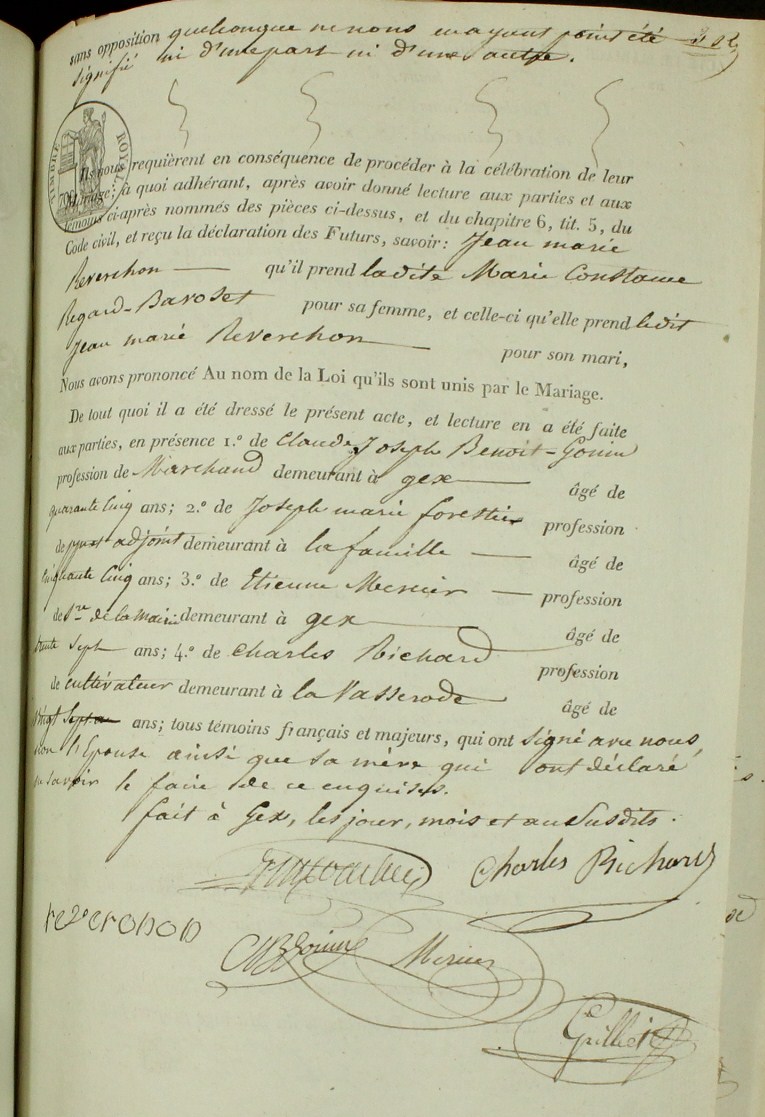 sans opposition quelconque ne nous en ayant point été
signifié ni d'une part ni d'une autre.
TIMBRE ROYAL
Ils nous requièrent en conséquence de procéder à la célébration de leur
Mariage; à quoi adhérant, après avoir donné lecture aux parties et aux
témoins ci-après nommés des pièces ci-dessus, et du chapitre 6, tit. 5, du
Code civil, et reçu la déclaration des Futurs, savoir: Jean marie
Reverchon qu'il prend ladite Marie Constance
Regard-Baroset pour sa femme, et celle-ci qu'elle prend ledit
Jean marie Reverchon pour son mari,
Nous avons prononcé Au nom de la Loi qu'ils sont unis par le Mariage.
De tout quoi il a été dressé le présent acte, et lecture en a été faite
aux parties, en présence 1.º de Claude Joseph Benoit-Gonin
profession de Marchand demeurant à gex âgé de
quarante Cinq ans; 2.º de Joseph marie forestier profession
de adjoint demeurant à la faucille âgé de
Cinquante Cinq ans; 3.º de Etienne Mercier profession
de S.re de la Mairie demeurant à gex âgé de
trente Sept ans; 4.º de Charles Richard profession
de cultivateur demeurant à la Vasserode âgé de
Vingt Sept ans; tous témoins français et majeurs, qui ont signé avec nous,
non l'Epouse ainsi que sa mère qui ont déclaré
ne savoir le faire de ce enquises.
fait à Gex, les jour, mois et an Susdits.
Charles Richard
reverchon
Gonin Mercier